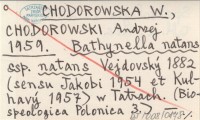 CHODOROWSKA W.,
CHODOROWSKI Andrzej
1959. Bathynella natans
ssp. natans Vejdovský 1882
(sensu Jakobi 1954 et Kul-
havý 1957) w Tatrach. (Bio-
speologica Polonica 3.)